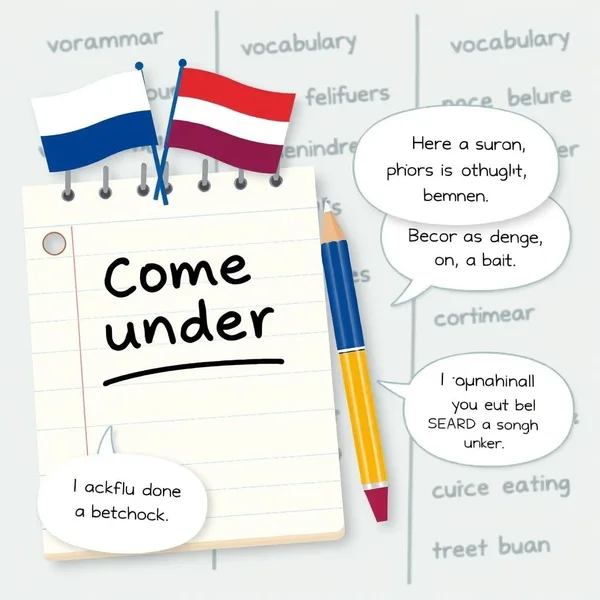 vorammar
vocabulary
vocabulary
felifuers
belure
Here a suron,
is
bemnen.
Becor as denge,
on, a bait.
Come
under
cortimear
I
you eut bel
SEARD a songh
unker.
I ackflu done
a betchock.
cuice eating
treet buan